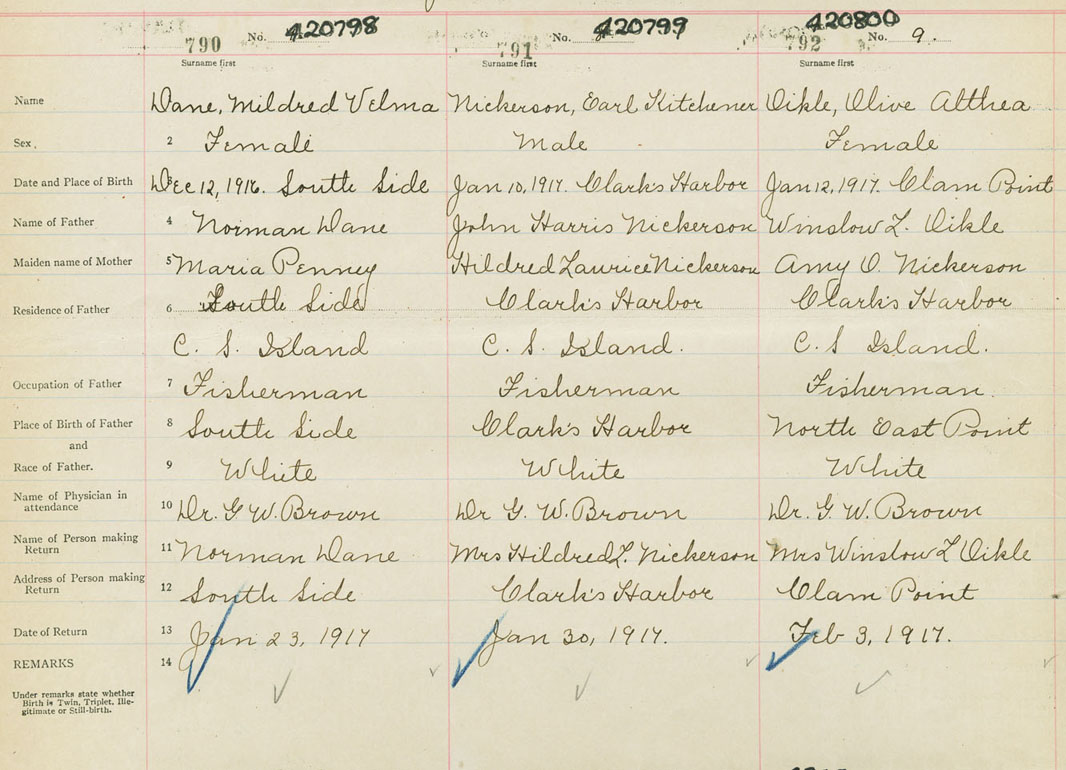 No. 420798 No. 420799 420800
790 791 792 No. 9.
Surname first Surname first Surname first
Name Dane, Mildred Velma Nickerson, Earl Kitchener Oikle, Olive Althea
Sex. 2 Female Male Female
Date and Place of Birth 3 Dec 12, 1916. South Side Jan 10, 1917. Clark's Harbor Jan 12, 1917. Clam Point
Name of Father 4 Norman Dane John Harris Nickerson Winslow L. Oikle
Maiden name of Mother 5 Maria Penney Hildred Laurice Nickerson Amy O. Nickerson
Residence of Father 6 South Side Clark's Harbor Clark's Harbor
C. S. Island C. S. Island. C. S Island.
Occupation of Father 7 Fisherman Fisherman Fisherman.
Place of Birth of Father 8 South Side Clark's Harbor North East Point
and
Race of Father. 9 White White White
Name of Physician in
attendance 10 Dr. G W. Brown Dr G. W. Brown Dr. G. W. Brown
Name of Person making
Return 11 Norman Dane Mrs Hildred L. Nickerson Mrs Winslow L Oikle
Address of Person making
Return 12 South Side Clark's Harbor Clam Point
Date of Return 13 Jan 23, 1917 Jan 30, 1917. Feb 3, 1917.
REMARKS 14
Under remarks state whether
Birth is Twin, Triplet, Ille-
gitimate or Still-birth.